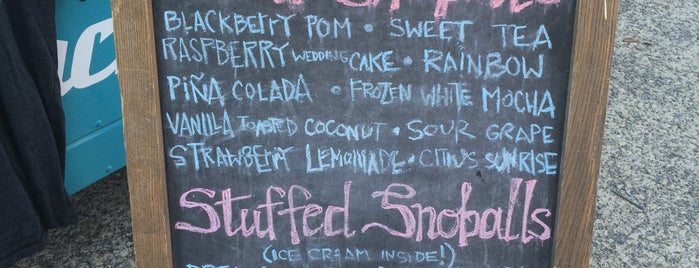 BLACKBERRY POM • SWEET TEA
RASPBERRY WEDDING CAKE • RAINBOW
PIÑA COLADA • FROZEN WHITE MOCHA
VANILLA TOASTED COCONUT • SOUR GRAPE
STRAWBERRY LEMONADE • CITRUS SUNRISE
Stuffed Snoballs
(ICE CREAM INSIDE!)